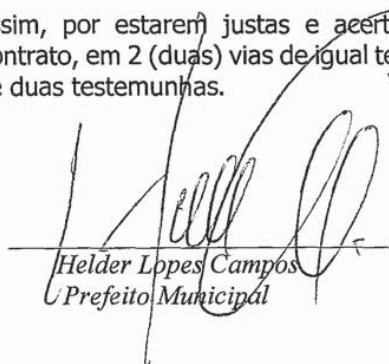 ssim, por estarem justas e acert
ontrato, em 2 (duas) vias de igual te
e duas testemunhas.
Helder Lopes Campos
Prefeito Municipal